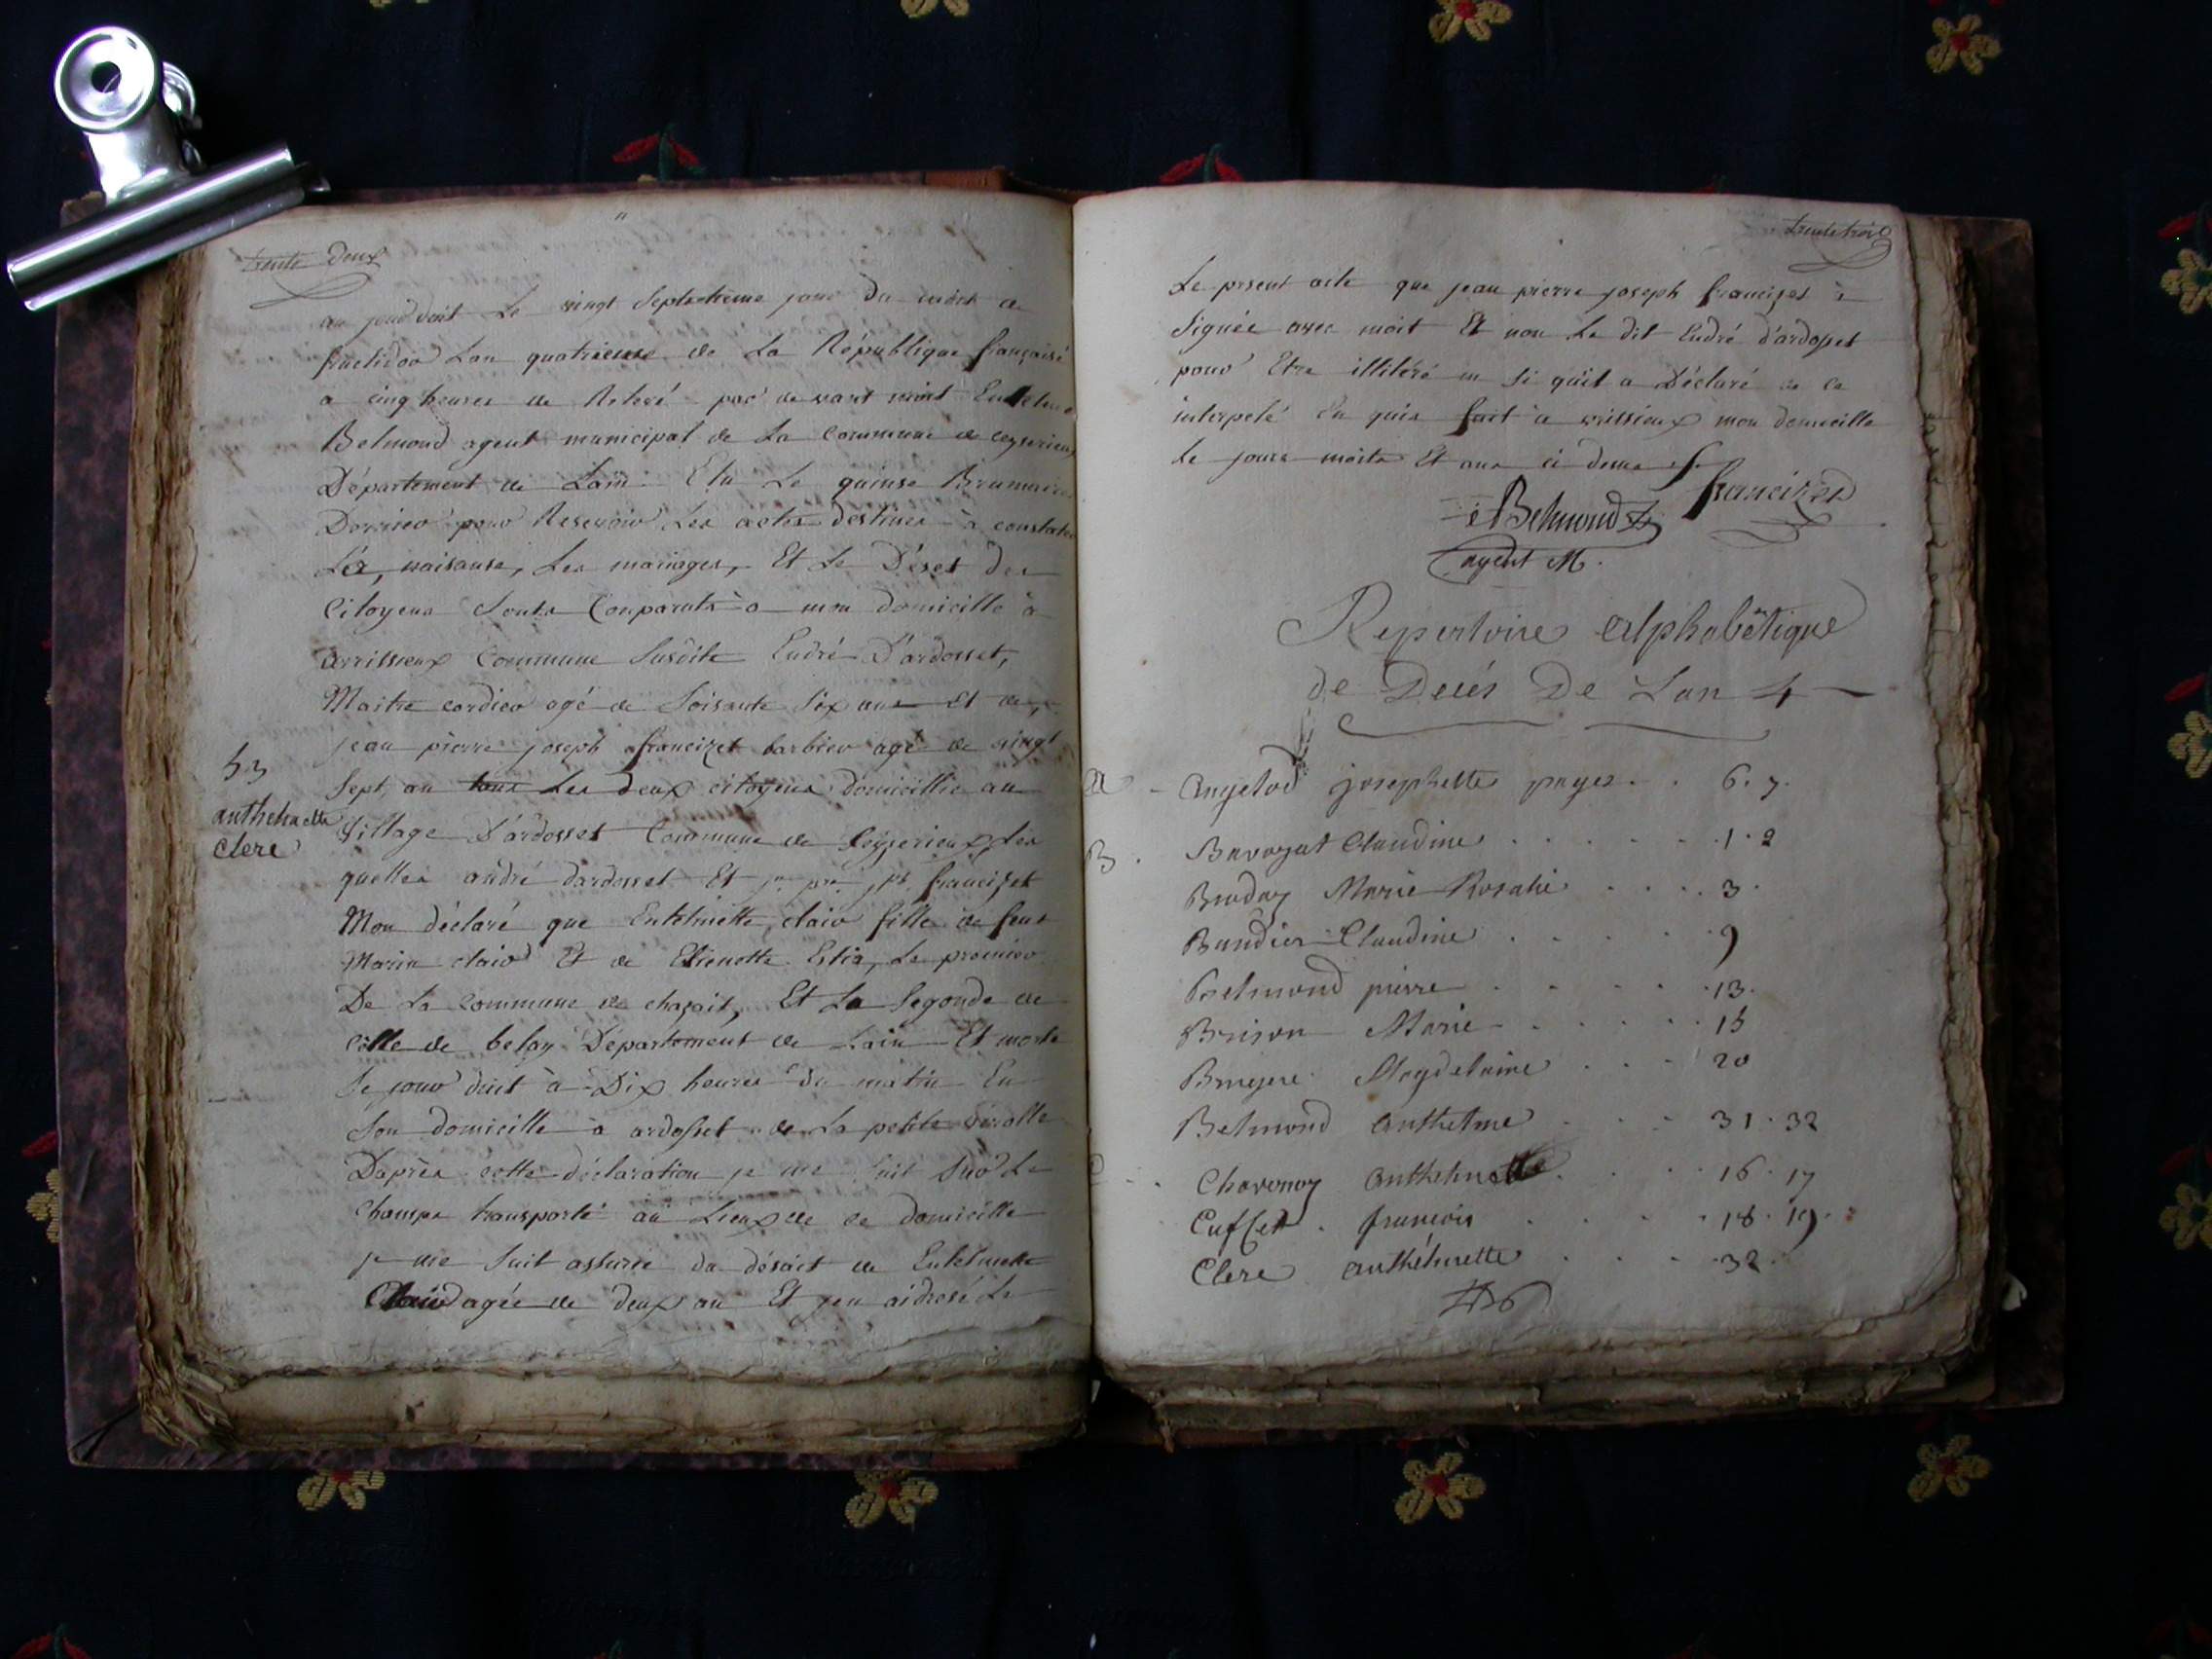 trente deux
au jourdoit Le vingt Septxheme jour du mois de
fructidor Lan quatrieme de La République française
a cinq heures de Relevé par devant moit
Belmond agent municipal de La Commune de ceyserieux
Département de Lain Elu Le quinse Brumaire
Dernier pour Resevoir Les actes destines à constater
Les, naisanse, Les mariages, Et Le Déset des
Citoyens Sonts Comparuts a mon domicille à
avrissieux Commune Susdite Endré D'ardosset,
Maitre cordier agé de Soisante Six ans Et de,
jean pierre joseph francizet barbier agé de vingt
Sept, an tous Les deux citoyens domicillie au
53
anthelmette
Clerc
Village D'ardosset Commune de Ceyserieux, Les
quelles andré dardosset Et jn pre jph francizet
Mon déclaré que Entelmette clair fille de feut
Marin clair Et de Etienette, Le premier
De La Commune de chazait, Et La Segonde de
Cille de belay Département de Lain Et morte
Se jour doit à Dix heures du matin En
Son domicille a ardosset de La petite virolle
Daprès cette déclaration je me Suit Sur Le
Champs transporté au Lieux de Se domicille
je me Suit assurée du désait de Entelmette
Clair agée de deux an Et jen ai dresé Le
trente trois
Le présent acte que jean pierre joseph francizet à
Signée avec moit Et non Le dit Endré d'ardosset
pour Etre illitéré Si qu'il a Déclaré de Ce
interpelé fait a vrissieux mon domicille
Le jours mois Et ans ci desus
francizet
Belmond
agent M.
Repertoire Alphabétique
de Decés De Lan 4
A - Angelod josephette pages . . 6. 7.
B . Bavozat Claudine . . . . . . 1. 2
Marie Rosalie . . . . 3.
Claudine . . . . . 9
Belmond pierre . . . . . 13.
Brison Marie . . . . . 15
Bruyere Magdelaine . . . 20
Belmond Anthelme . . . 31. 32
C . . Anthelmette . . . 16. 17
francois . . . . 18. 19.
Clerc anthelmette . . . . 32.